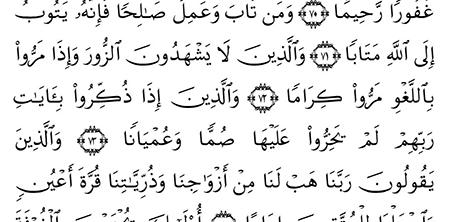 غَفُورٗا رَّحِيمٗا ۝٧٠ وَمَن تَابَ وَعَمِلَ صَٰلِحٗا فَإِنَّهُۥ يَتُوبُ
إِلَى ٱللَّهِ مَتَابٗا ۝٧١ وَٱلَّذِينَ لَا يَشۡهَدُونَ ٱلزُّورَ وَإِذَا مَرُّواْ
بِٱللَّغۡوِ مَرُّواْ كِرَامٗا ۝٧٢ وَٱلَّذِينَ إِذَا ذُكِّرُواْ بِـَٔايَٰتِ
رَبِّهِمۡ لَمۡ يَخِرُّواْ عَلَيۡهَا صُمّٗا وَعُمۡيَانٗا ۝٧٣ وَٱلَّذِينَ
يَقُولُونَ رَبَّنَا هَبۡ لَنَا مِنۡ أَزۡوَٰجِنَا وَذُرِّيَّٰتِنَا قُرَّةَ أَعۡيُنٖ